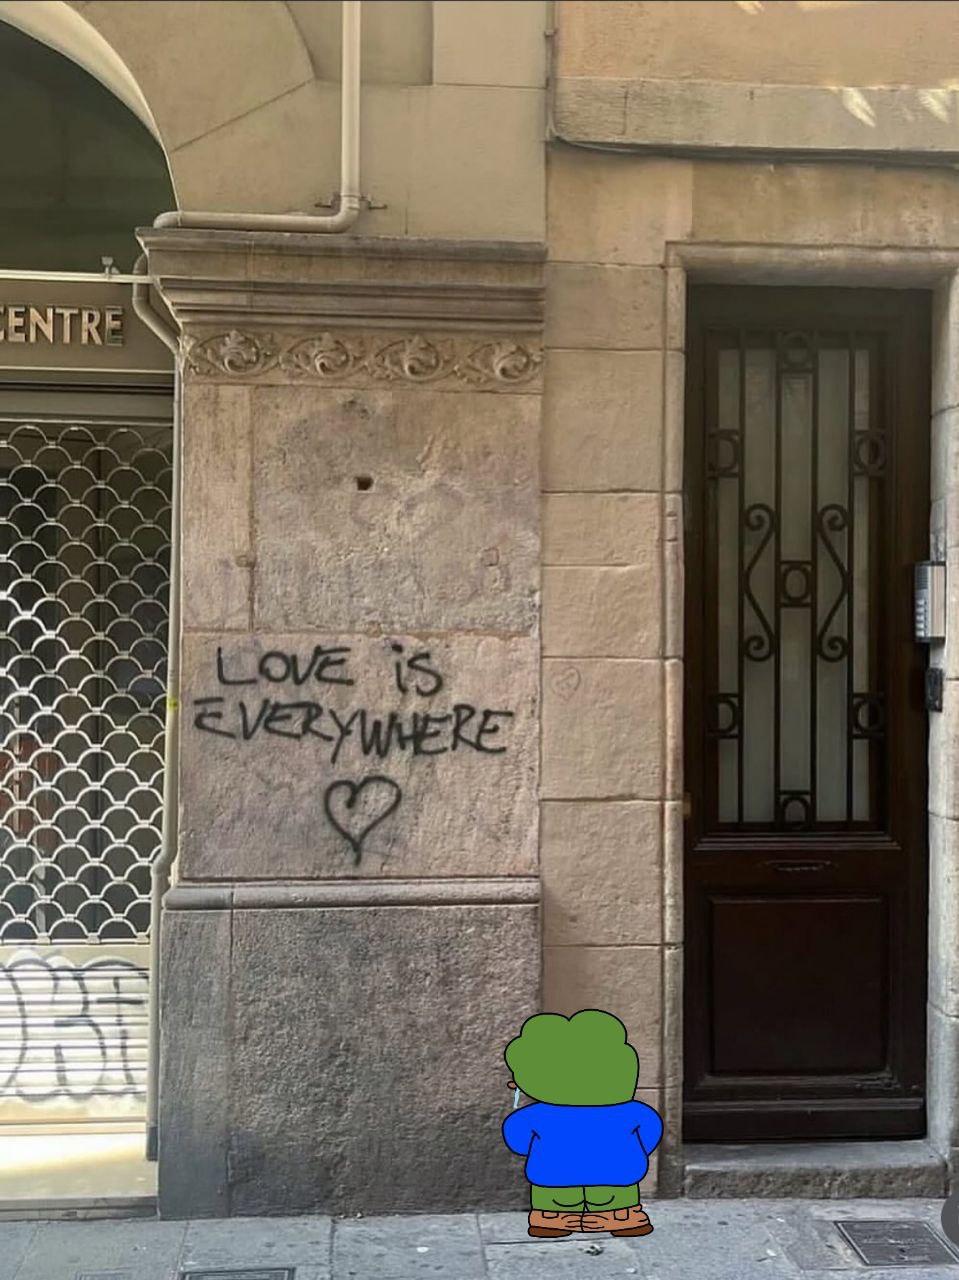 CENTRE
LOVE iS
EVERYWHERE